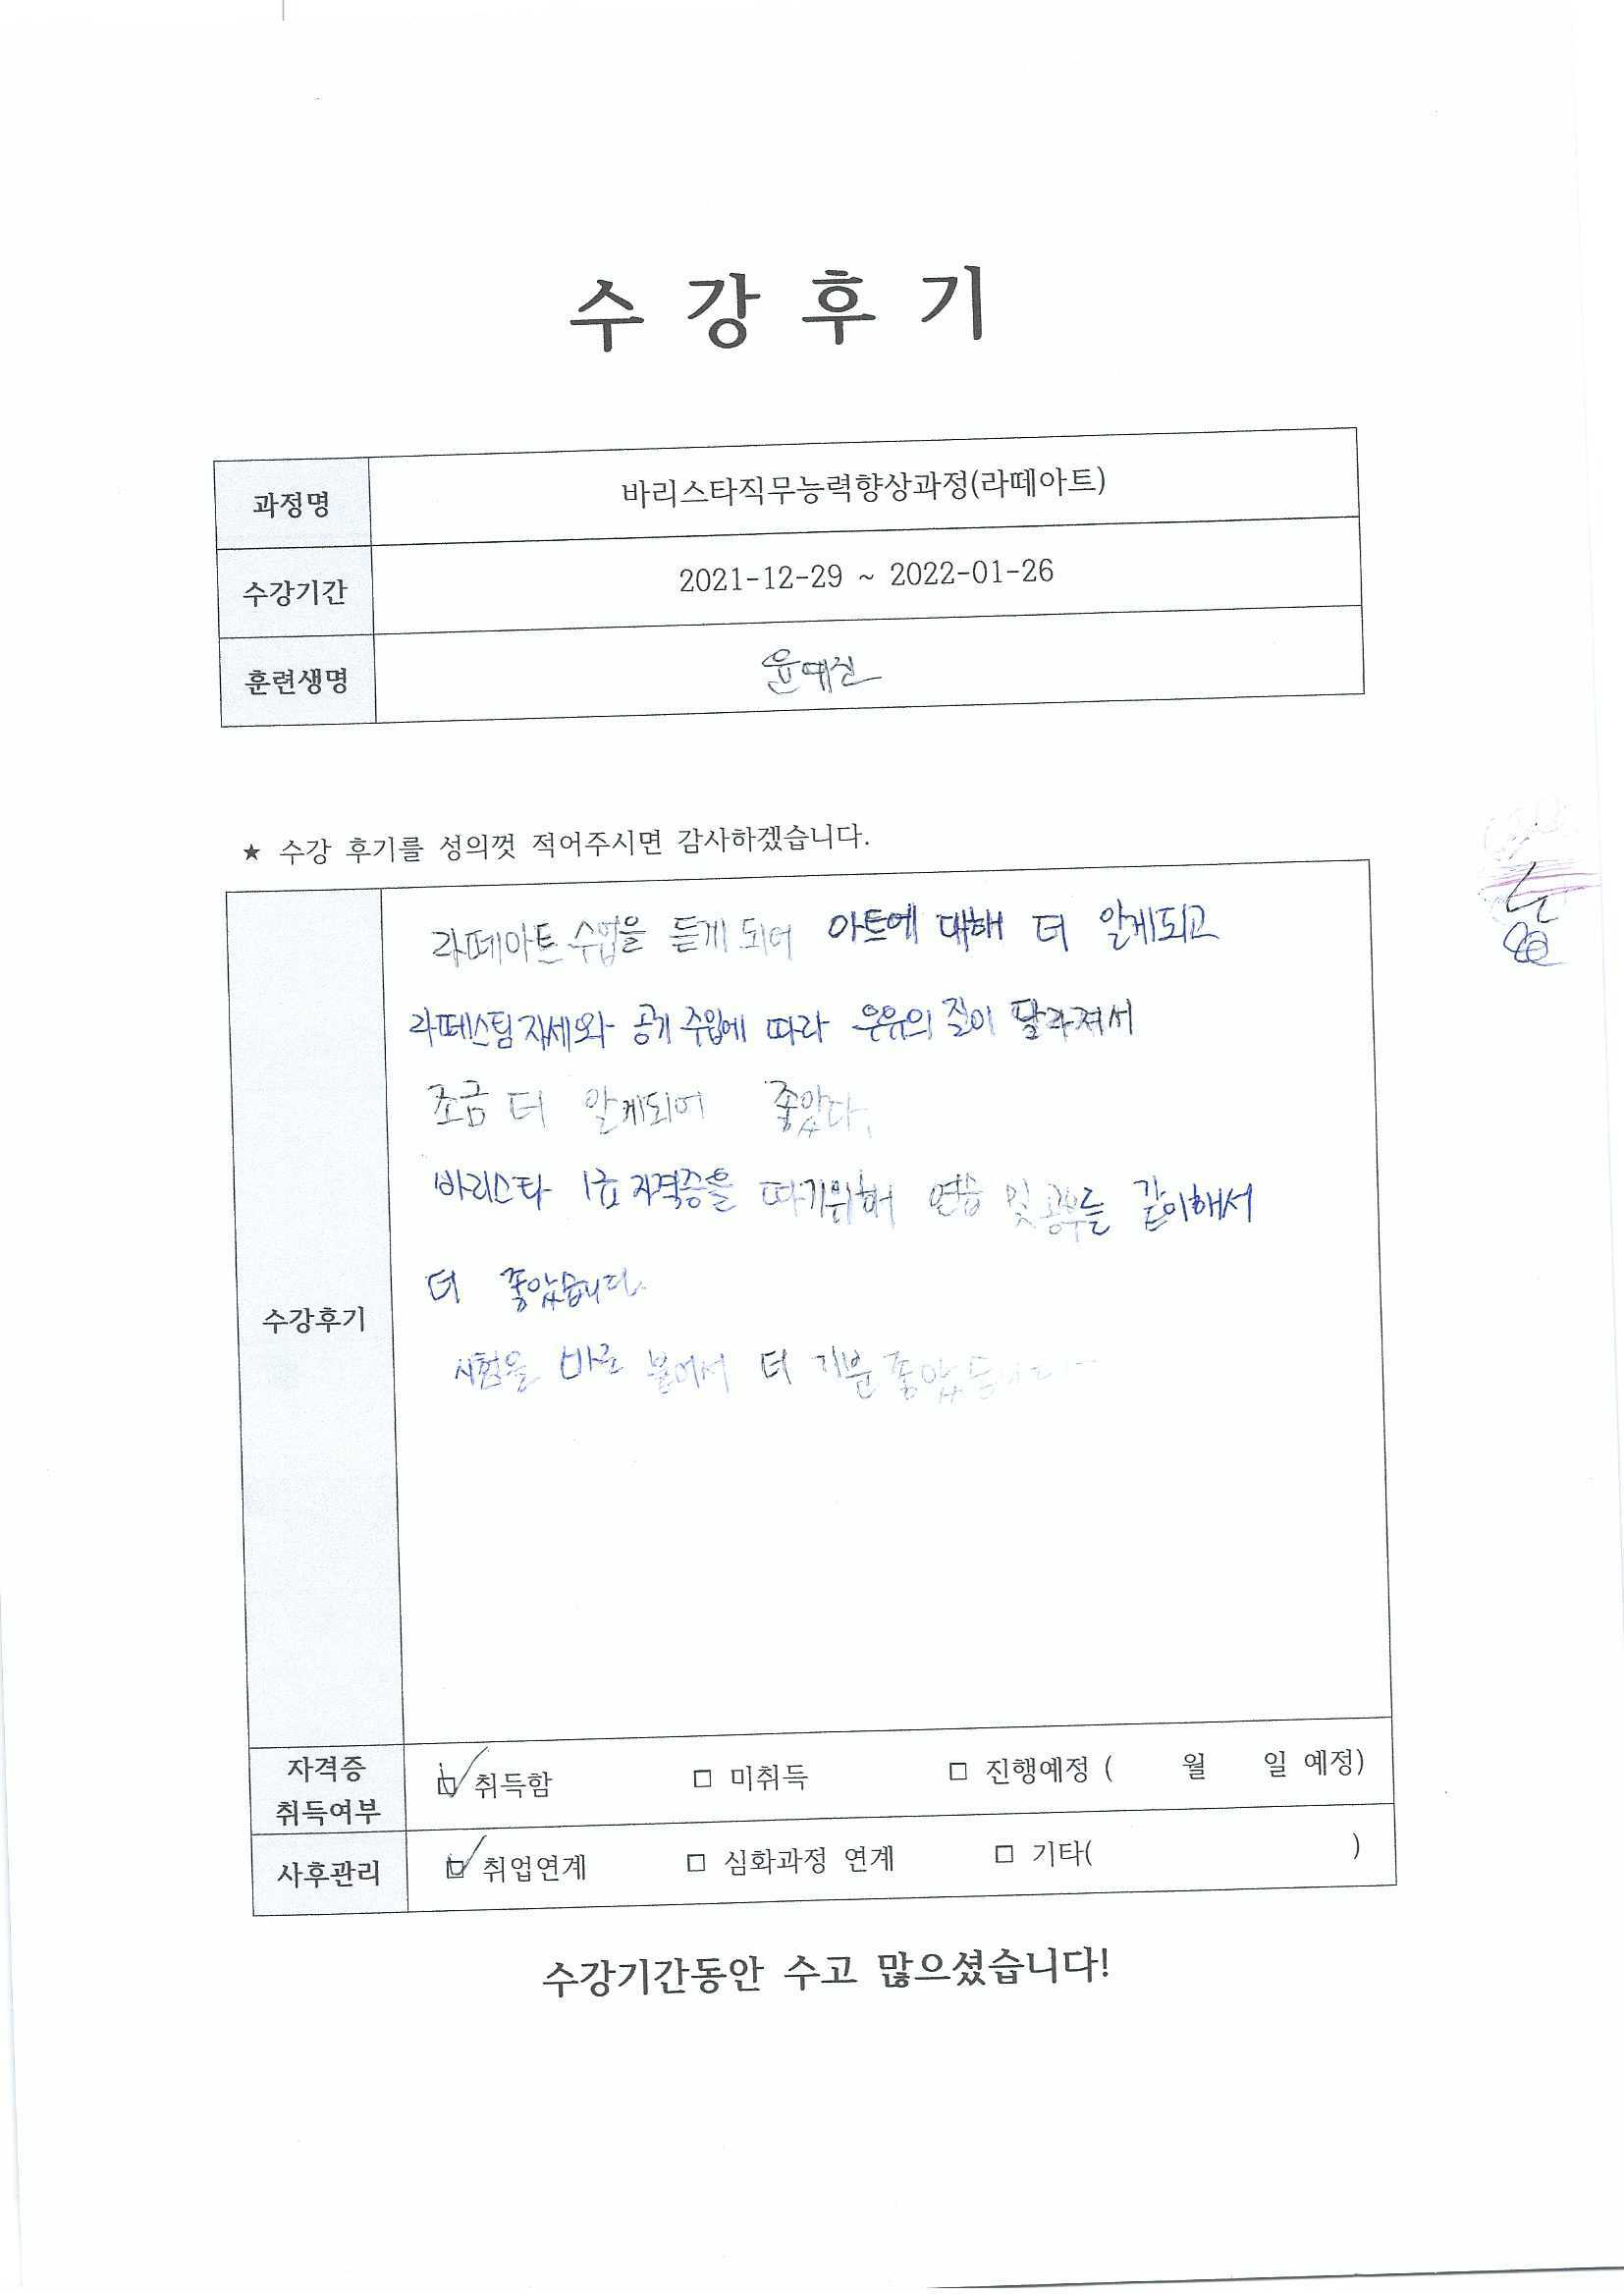 수 강 후 기
과정명 바리스타직무능력향상과정(라떼아트)
수강기간 2021-12-29 ~ 2022-01-26
훈련생명 윤예진
★ 수강 후기를 성의껏 적어주시면 감사하겠습니다.
라떼아트 수업을 듣게 되어 아트에 대해 더 알게되고
라떼스팀 자세와 공기 주입에 따라 우유의 질이 달라져서
조금 더 알게되어 좋았다.
바리스타 1급 자격증을 따기위해 연습 및 공부를 같이해서
더 좋았습니다.
수강후기
시험을 바로 붙어서 더 기분 좋았습니다
자격증 취득여부 ☑ 취득함 □ 미취득 □ 진행예정 ( 월 일 예정)
사후관리 ☑ 취업연계 □ 심화과정 연계 □ 기타( )
수강기간동안 수고 많으셨습니다!